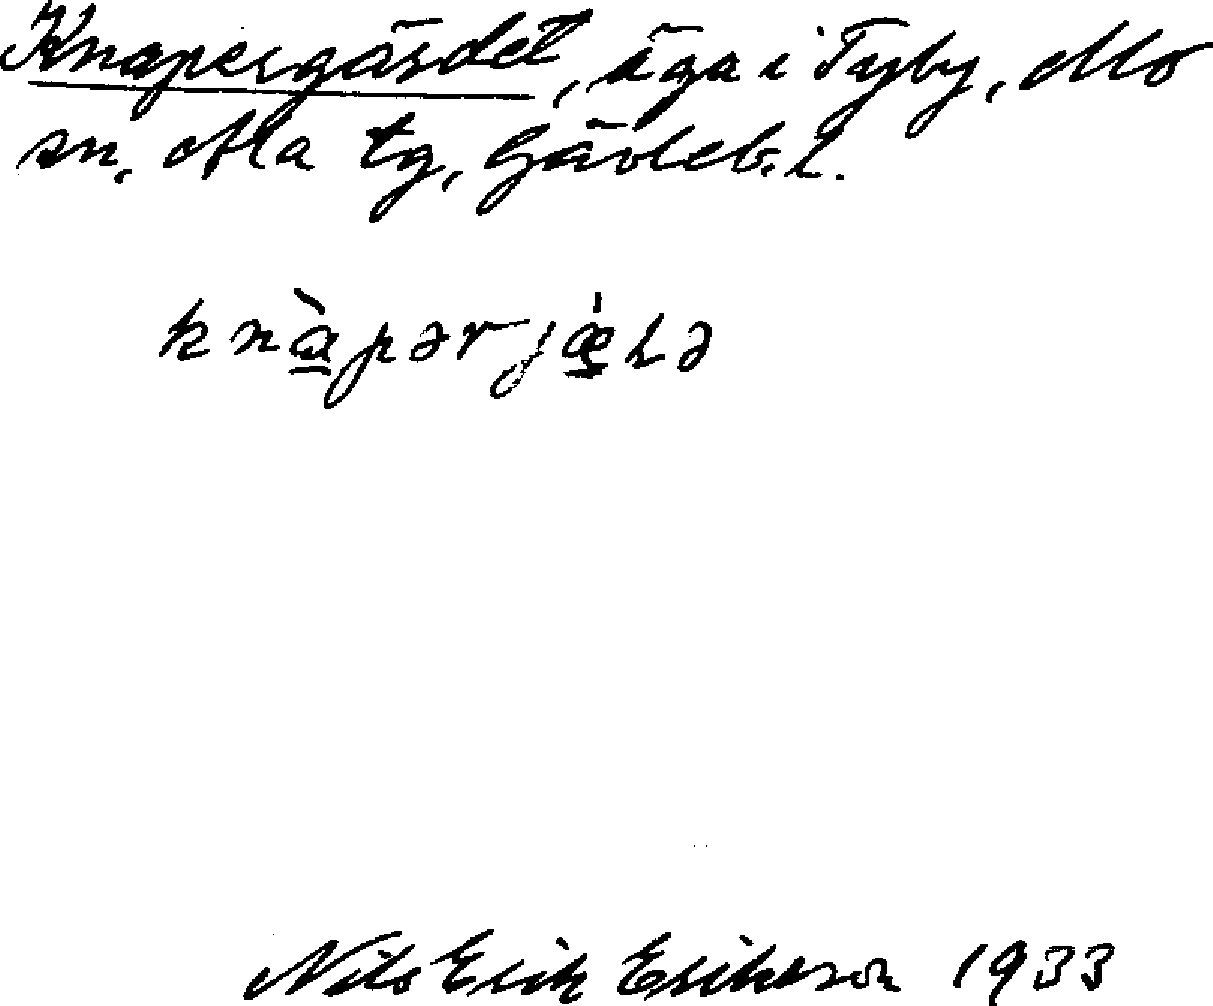 Knapergärdet, äga i Tyby, Mo
sn, Ala tg, Gävleb. l.
knàpərjǽɭə
Nils Erik Erikson 1933